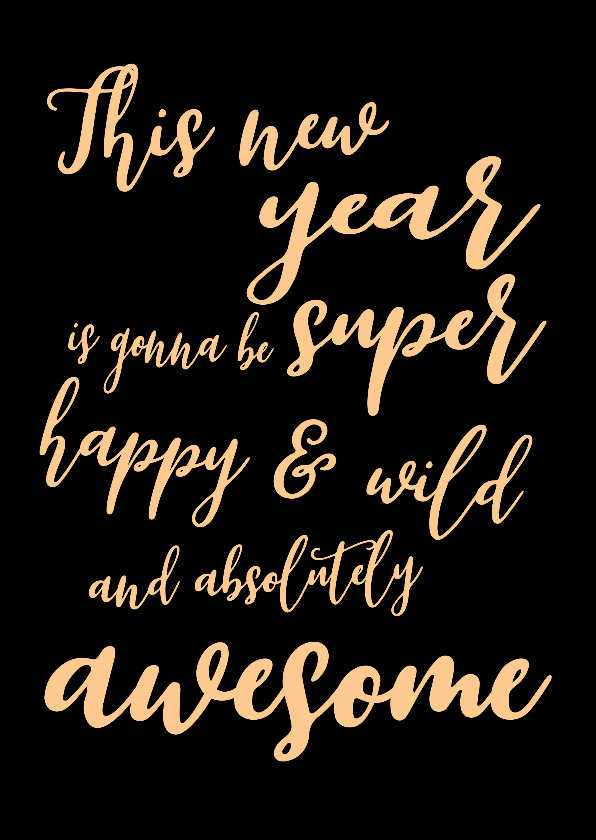 This new
year
is gonna be super
happy & wild
and absolutely
awesome